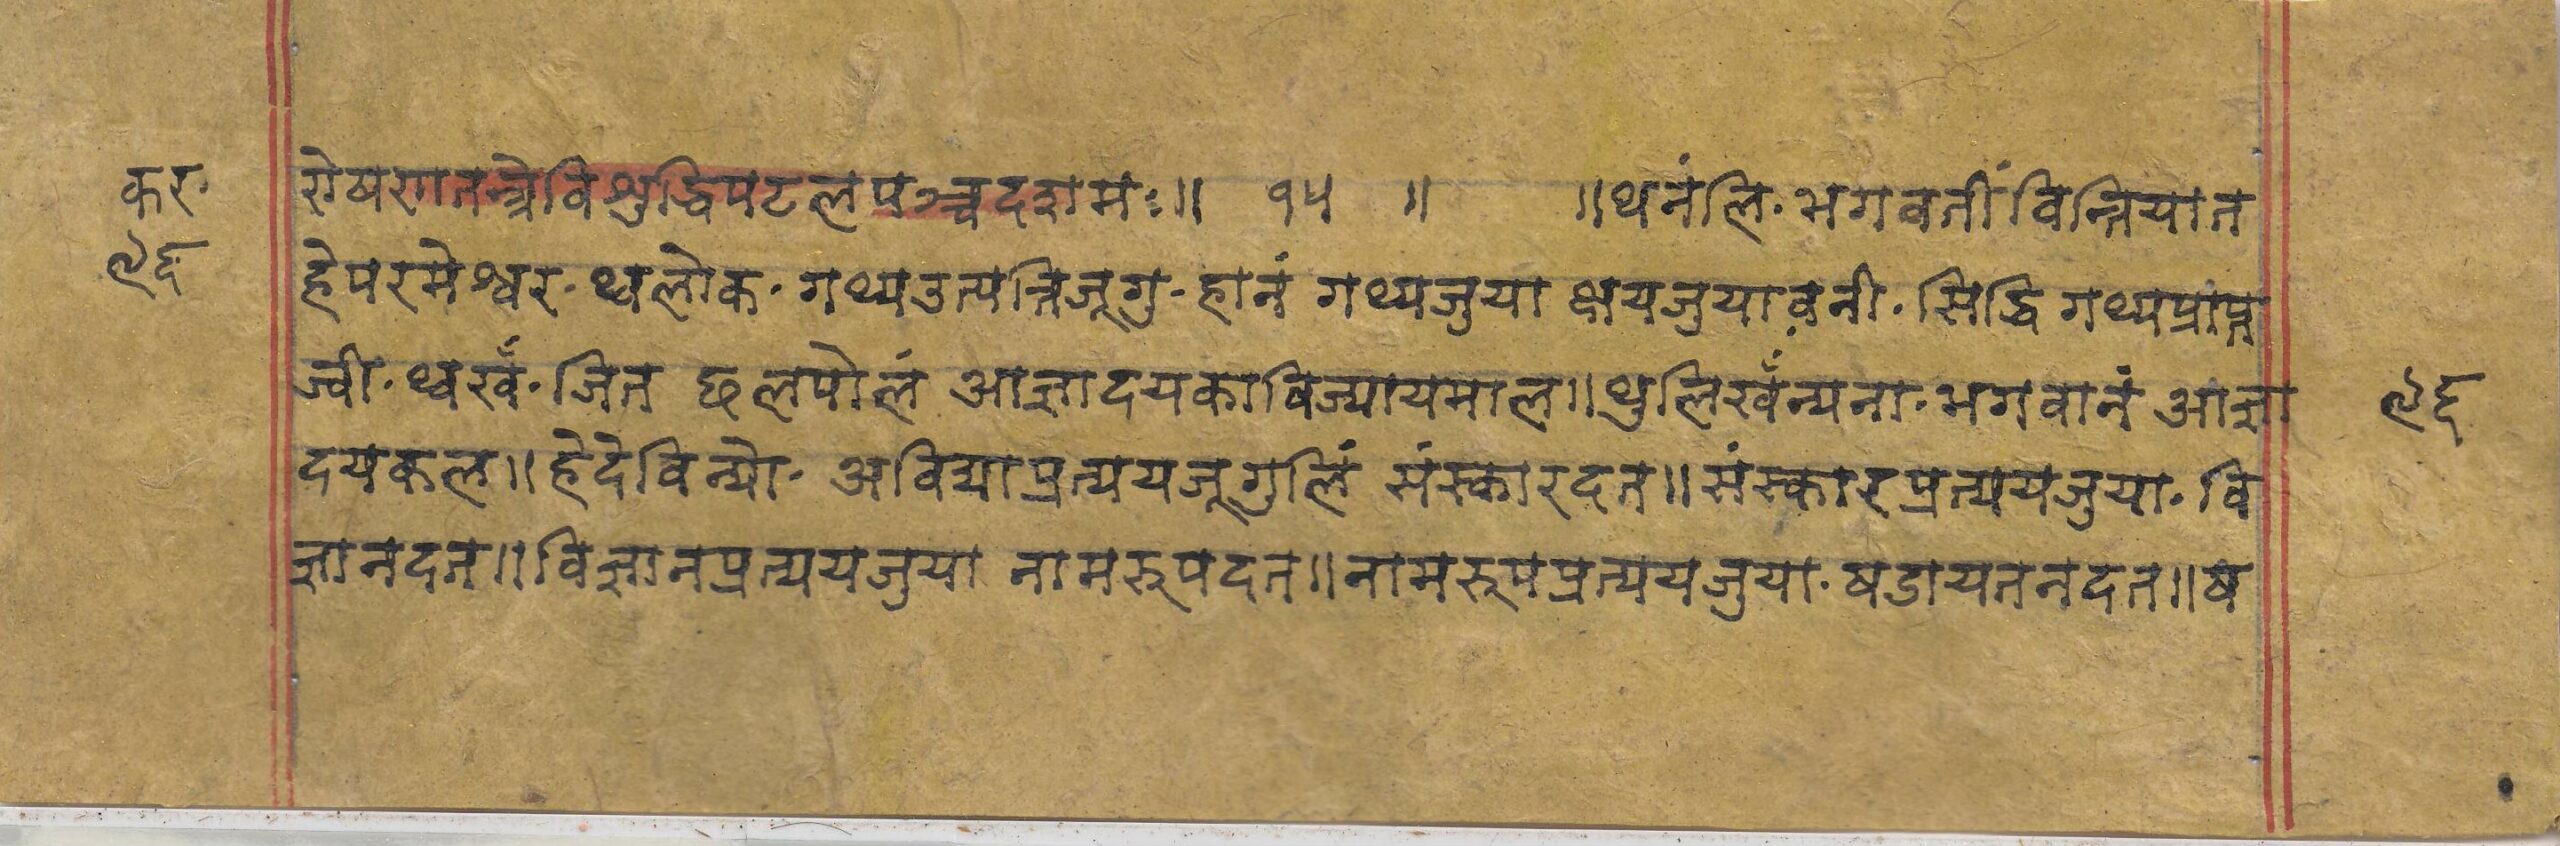 कर·
९६
रोषणतन्त्रेविशुद्धिपटलपञ्चदशमः॥ १५ ॥ ॥थनंलि·भगवतीं विन्तियात
हेपरमेश्वर·थ्वलोक·गथ्यउत्पत्तिजूगु·हानं गथ्यजुया क्षयजुयावनी·सिद्धि गथ्यप्राप्त
ज्वी·थ्वखँ·जित छलपोलं आज्ञादयकाबिज्यायमाल॥थुलिखँन्यना·भगवानं आज्ञा
९६
दयकल॥हेदेविन्यो·अविद्याप्रत्ययजूगुलिं संस्कारदत॥संस्कारप्रत्ययजुया·वि
ज्ञानदत॥विज्ञानप्रत्ययजुया नामरूपदत॥नामरूपप्रत्ययजुया·षडायतनदत॥ष